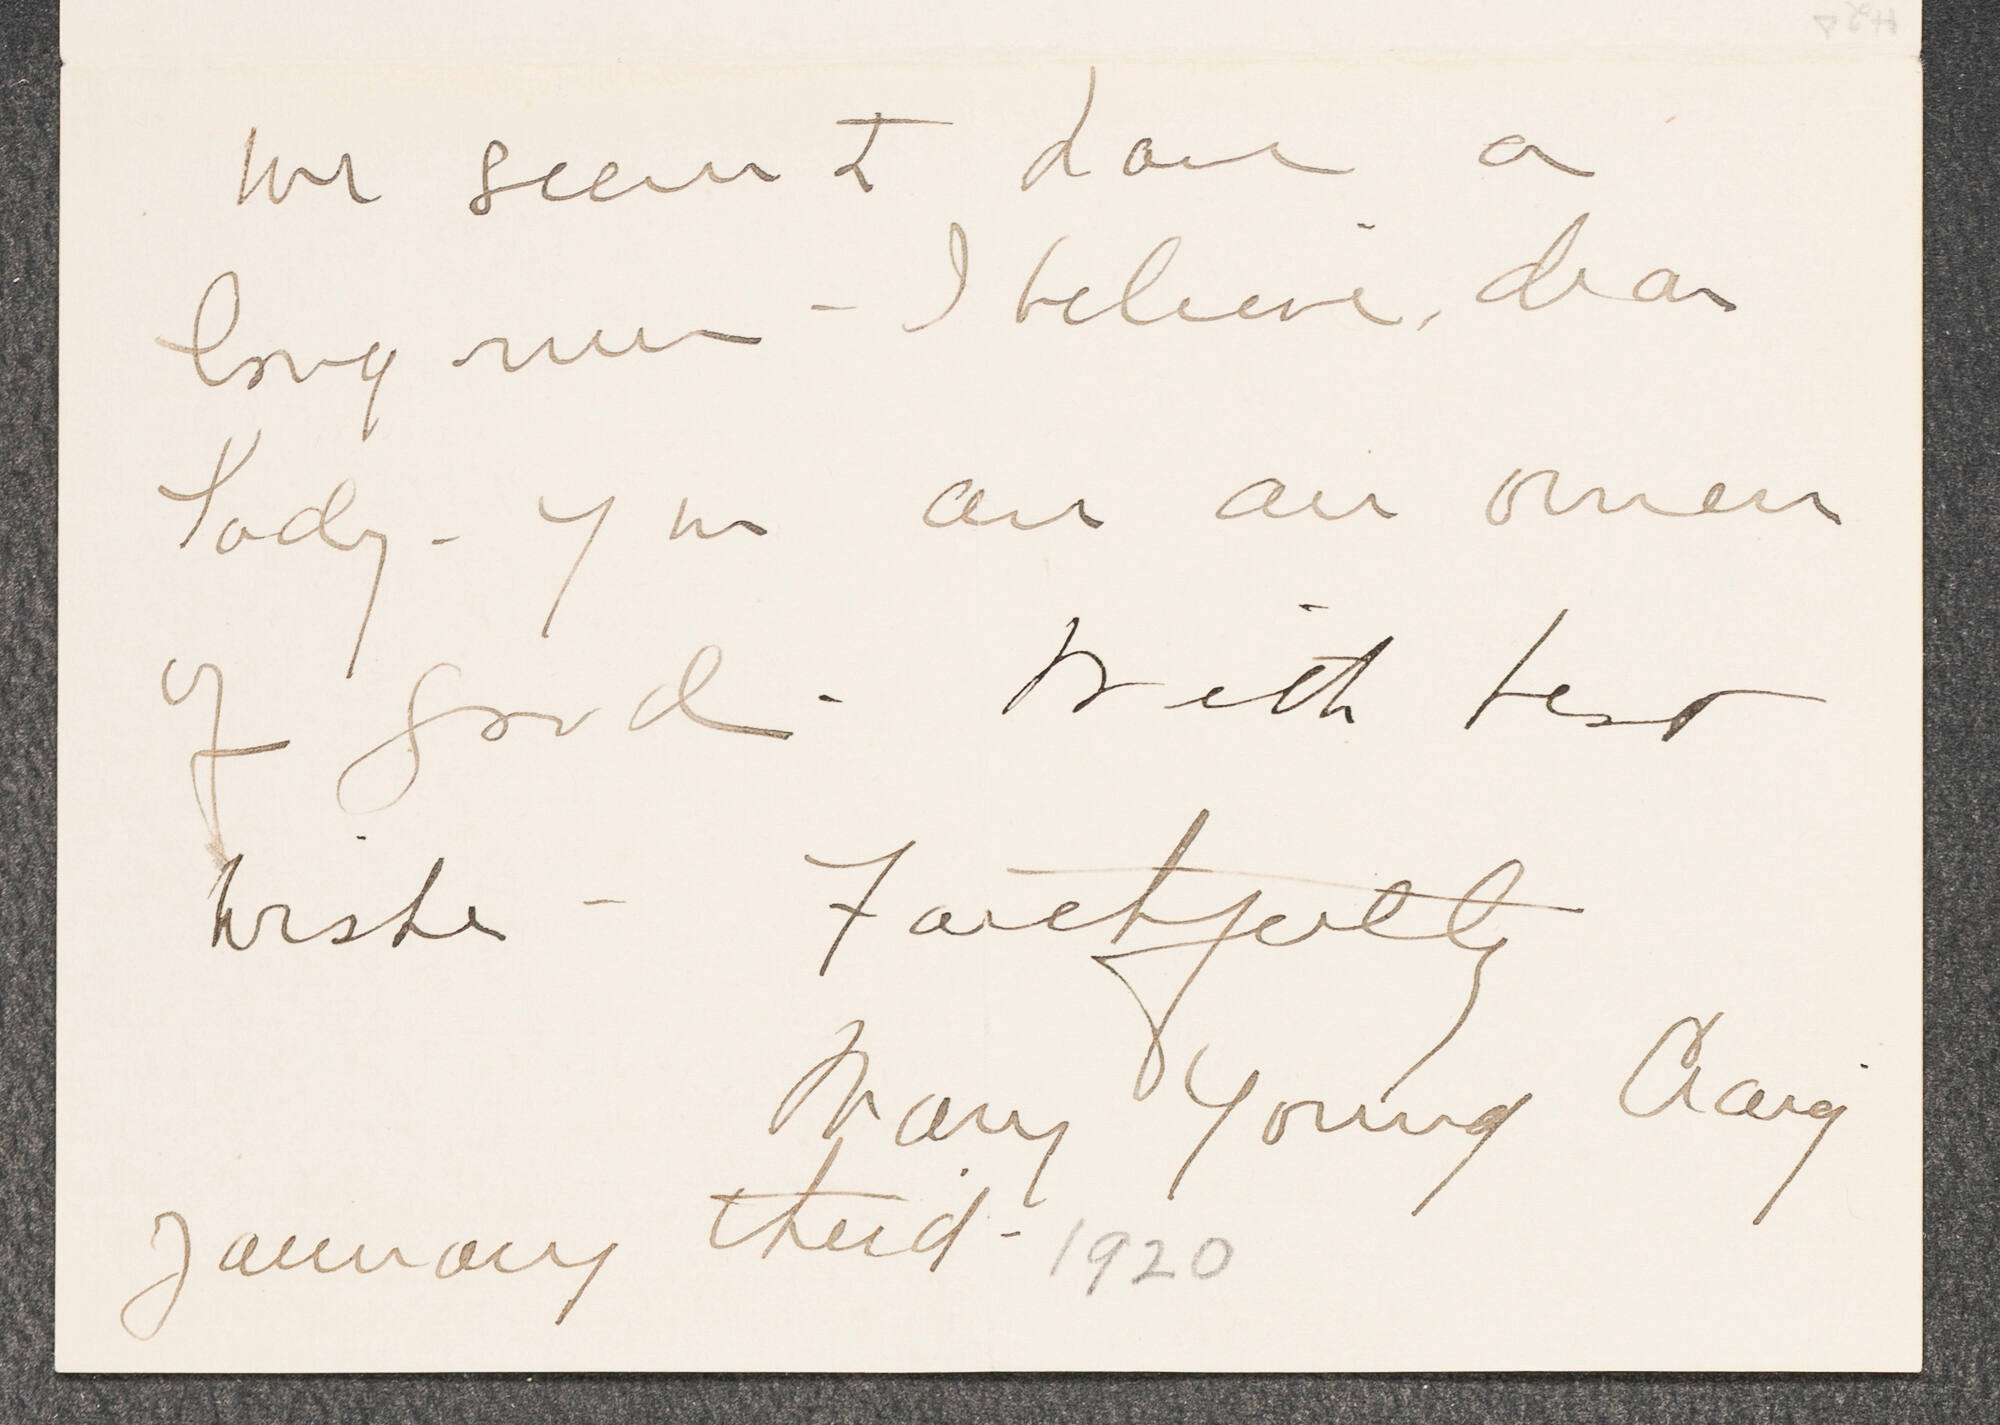 We seem to have a
long run - I believe, dear
Lady - you are an omen
of good - With best
wishes - Faithfully
Mary Young Craig
January third - 1920